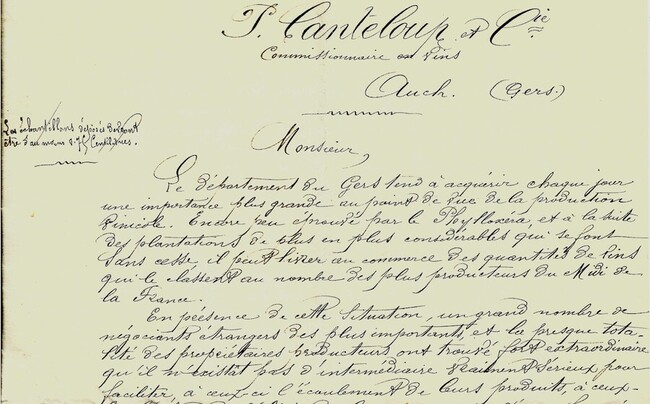 P. Canteloup et Cie
Commissionnaire en Vins
Auch. (Gers.)
Les échantillons déposés devront
être d'au moins 0.75 Centilitres.
Monsieur,
Le département du Gers tend à acquérir chaque jour
une importance plus grande au point de vue de la production
vinicole. Encore peu éprouvé par le Phylloxéra et à la suite
des plantations de plus en plus considérables qui se font
sans cesse il peut livrer au commerce des quantités de vins
qui le classent au nombre des plus producteurs du Midi de
la France.
En présence de cette situation, un grand nombre de
négociants étrangers des plus importants, et la presque tota-
lité des propriétaires producteurs ont trouvé fort extraordinaire
qu'il n'existât pas d'intermédiaire vraiment sérieux pour
faciliter, à ceux-ci l'écoulement de leurs produits, à ceux-